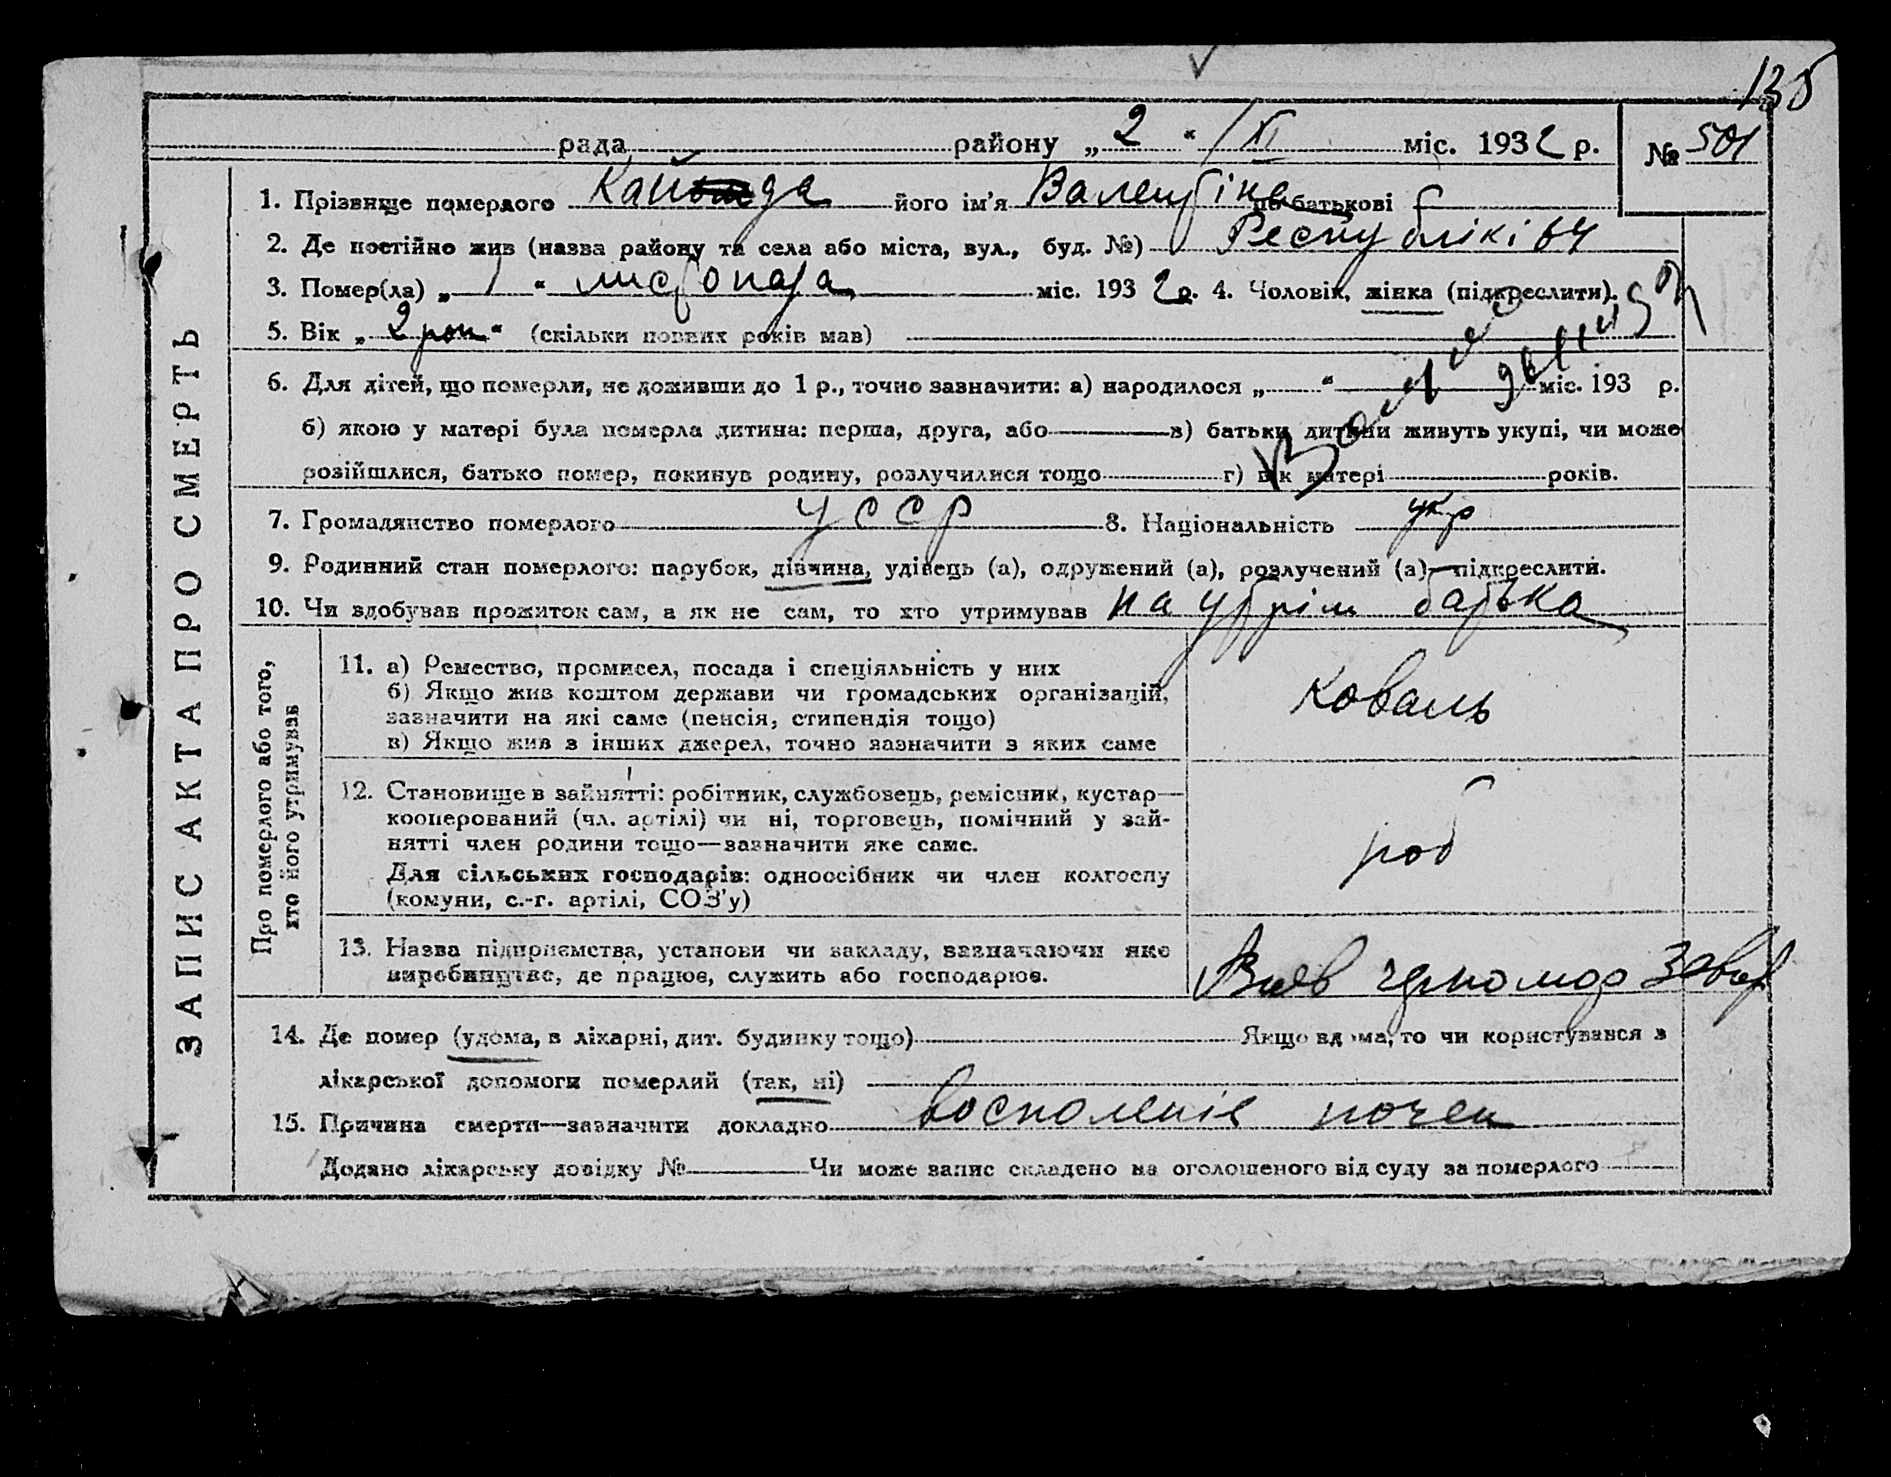 135
рада района „ 2 “ / XI міс. 1932 р. № 501
ЗАПИС АКТА ПРО СМЕРТЬ
1. Прізвище померлого його ім'я Валентіна по батькові
2. Де постійно жив (назва району та села або міста, вул., буд. №) Республікі 64
3. Помер(ла) „ 1 “ листопада міс. 1932 р. 4. Чоловік, жінка (підкреслити).
5. Вік „ 2 рок “ (скільки повних років мав)
6. Для дітей, що померли, не доживши до 1 р., точно зазначити: а) народилося „ “ міс. 193 р.
б) якою у матері була померла дитина: перша, друга, або — в) батьки дитини живуть укупі, чи може
розійшлися, батько помер, покинув родину, розлучилися тощо г) вік матері років.
7. Громадянство померлого УССР 8. Національність укр
9. Родинний стан померлого: парубок, дівчина, удівець (а), одружений (а), розлучений (а)—підкреслити.
10. Чи здобував прожиток сам, а як не сам, то хто утримував на утрім батька
Про померлого або того, хто його утримував
11. а) Ремество, промисел, посада і спеціяльність у них
б) Якщо жив коштом держави чи громадських організацій,
зазначити на які саме (пенсія, стипендія тощо)
в) Якщо жив з інших джерел, точно зазначити з яких саме
Коваль
12. Становище в зайнятті: робітник, службовець, ремісник, кустар—
кооперований (чл. артілі) чи ні, торговець, помічний у зай-
нятті член родини тощо—зазначити яке саме.
Для сільських господарів: одноосібник чи член колгоспу
(комуни, с.-г. артілі, СОЗ'у)
роб
13. Назва підприємства, установи чи закладу, зазначаючи яке
виробництво, де працює, служить або господарює.
черномор завод
14. Де помер (удома, в лікарні, дит. будинку тощо) Якщо вдома, то чи користувався з
лікарської допомоги померлий (так, ні)
15. Причина смерти—зазначити докладно восполеніе почек
Додано лікарську довідку № Чи може запис складено на оголошеного від суду за померлого